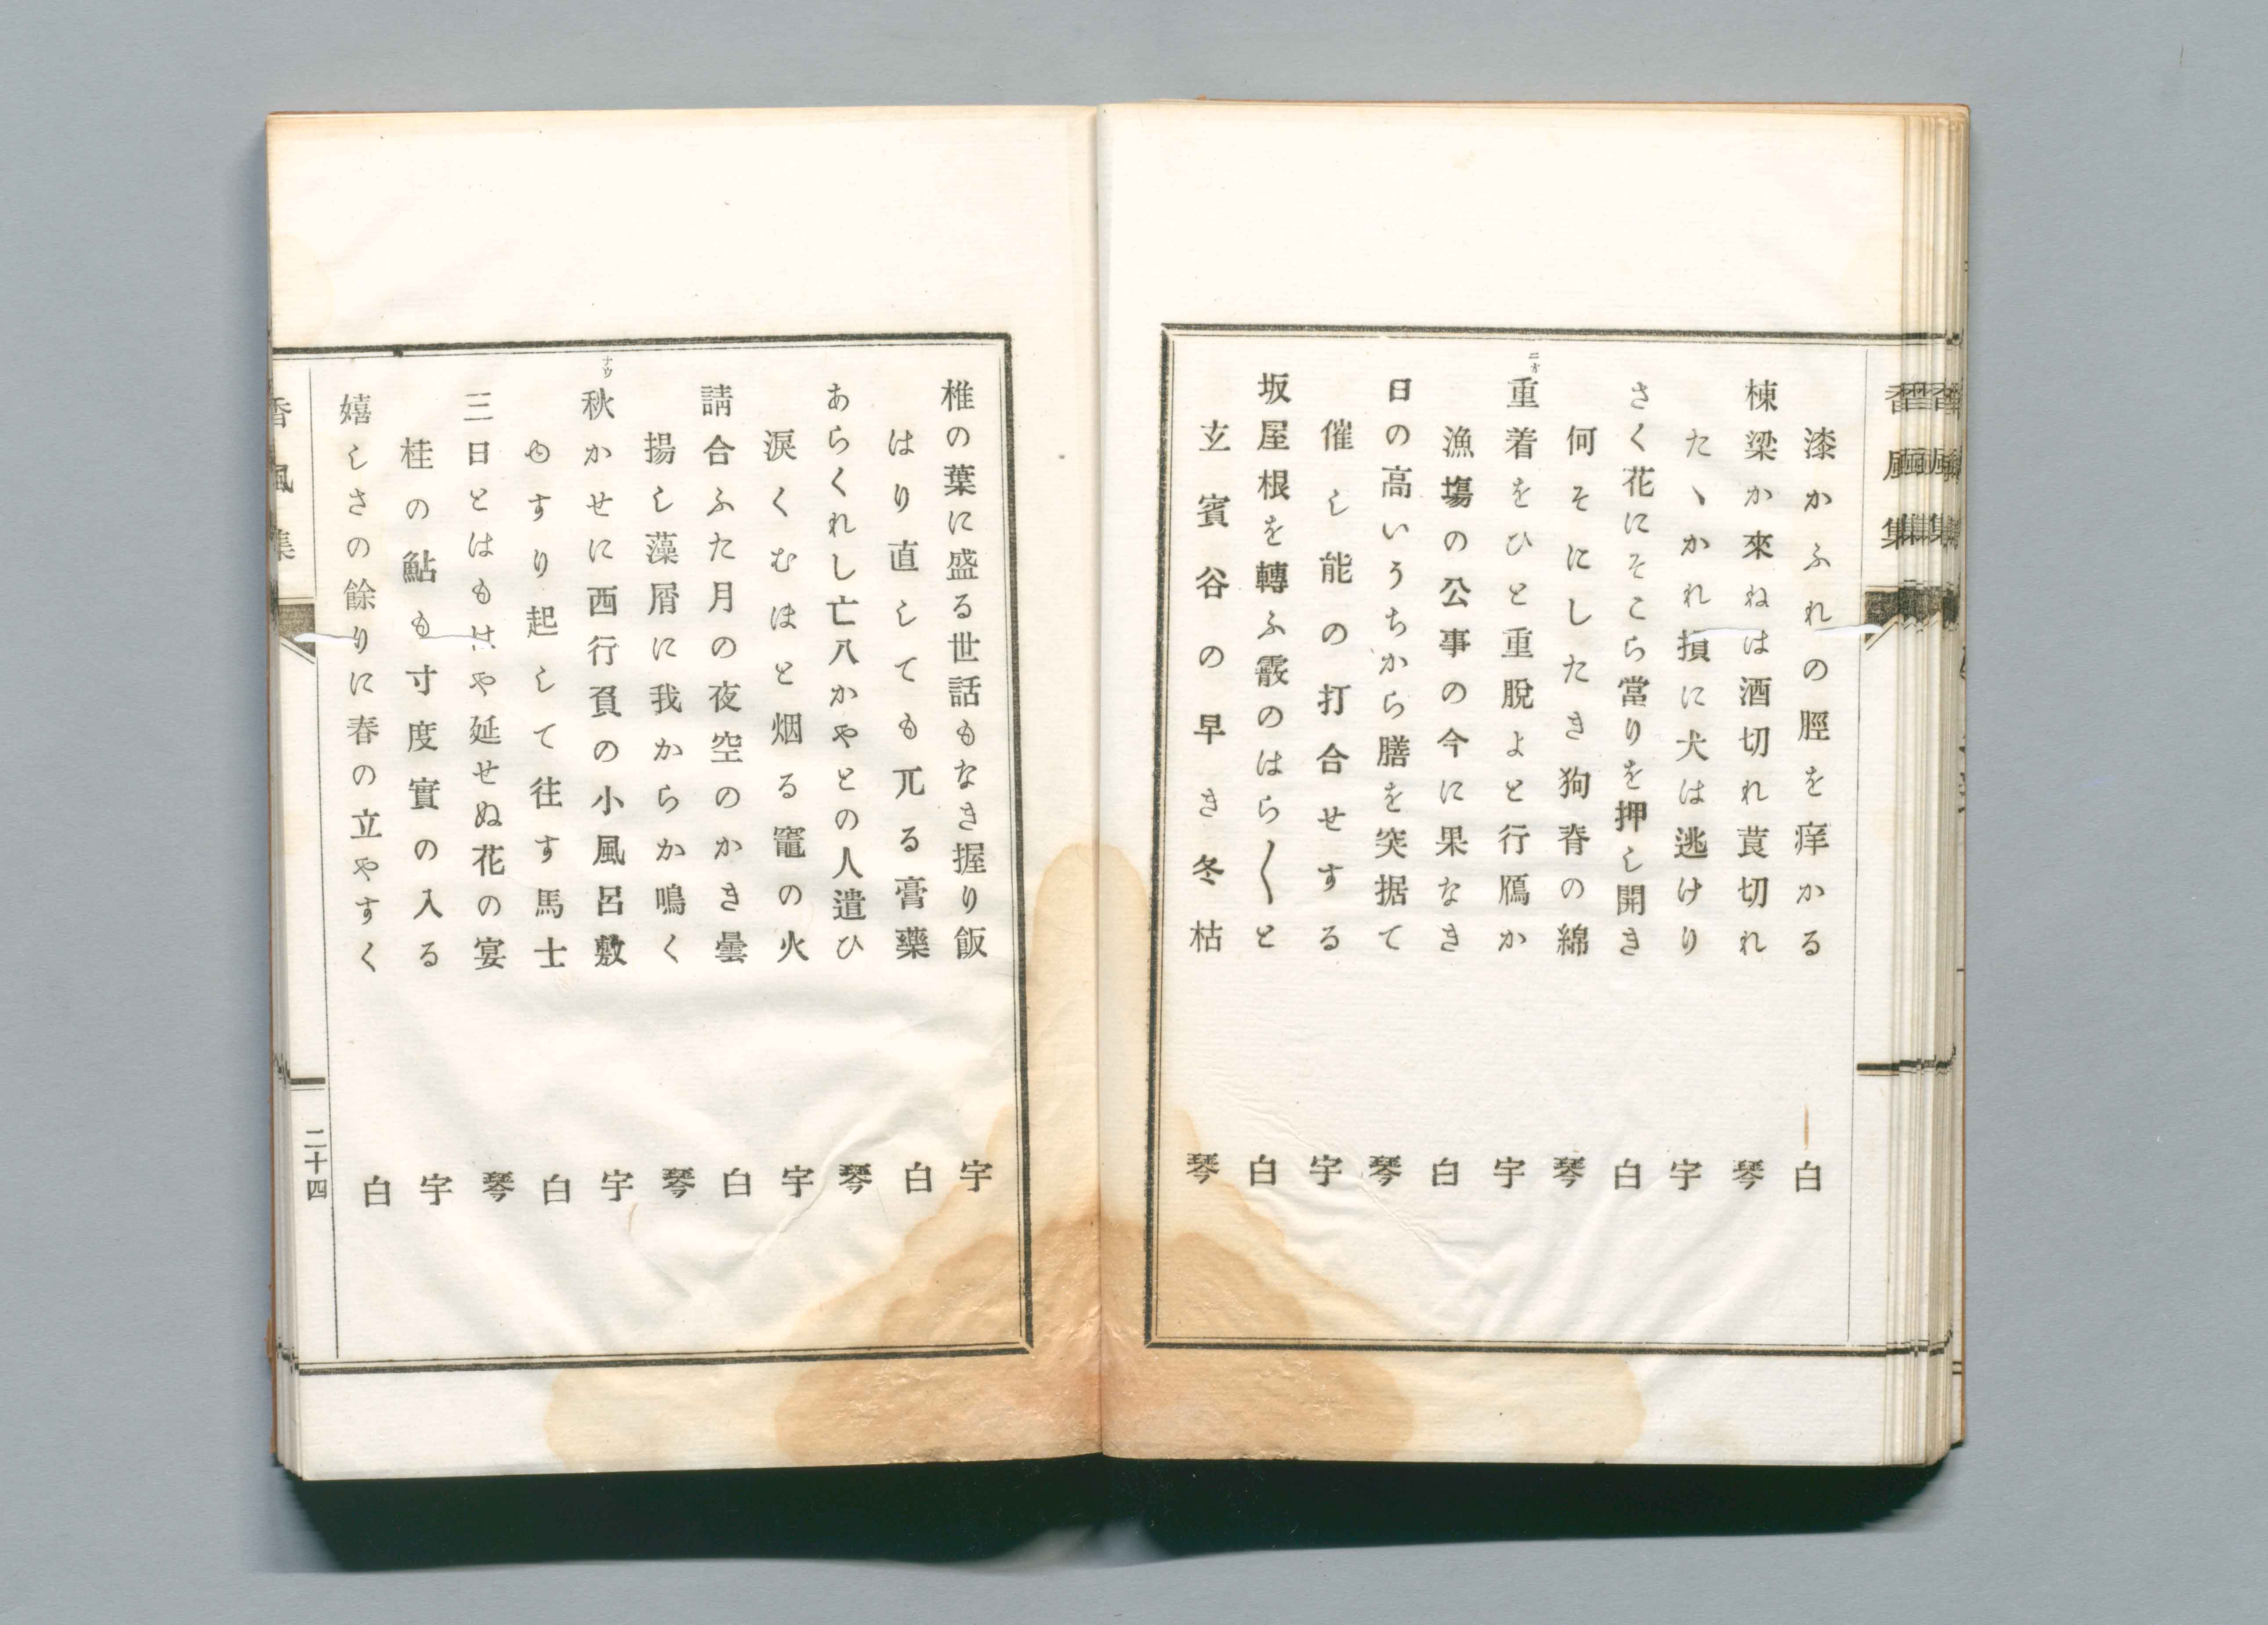 漆かふれの脛を痒かる　白
棟梁か來ねは酒切れ莨切れ　琴
たゝかれ損に犬は逃けり　宇
さく花にそこら當りを押し開き　白
何そにしたき狗脊の綿　琴
ニオ
重着をひと重脫よと行鴈か　宇
漁塲の公事の今に果なき　白
日の高いうちから膳を突据て　琴
催し能の打合せする　宇
坂屋根を轉ふ霰のはら〱と　白
玄賓谷の早き冬枯　琴
椎の葉に盛る世話もなき握り飯　宇
はり直しても兀る膏藥　白
あらくれし亡八かやとの人遣ひ　琴
淚くむほと烟る竈の火　宇
請合ふた月の夜空のかき曇　白
揚し藻屑に我からか鳴く　琴
ナウ
秋かせに西行負の小風呂敷　宇
ゆすり起して往す馬士　白
三日とはもはや延せぬ花の宴　琴
桂の鮎も寸度實の入る　宇
嬉しさの餘りに春の立やすく　白
香風集
二十四